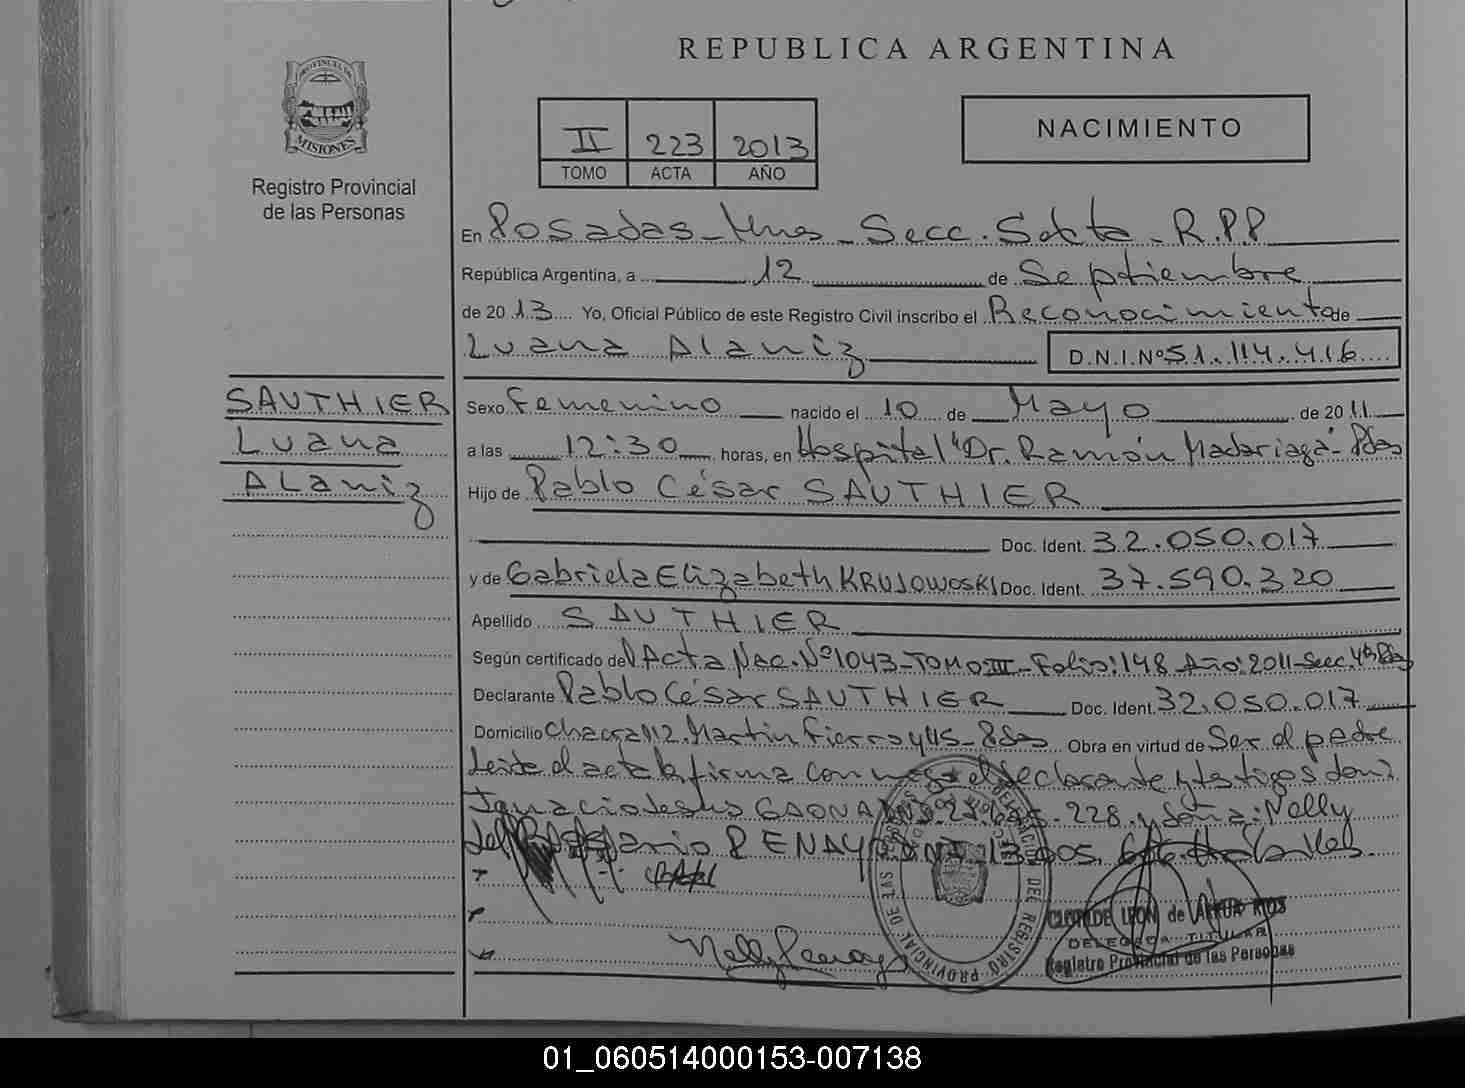 REPUBLICA ARGENTINA
PROVINCIA DE
MISIONES
Registro Provincial
de las Personas
II 223 2013
TOMO ACTA AÑO
NACIMIENTO
En Posadas - Mnes - Secc. Sexta - R.P.P
República Argentina, a 12 de Septiembre
de 2013 Yo, Oficial Público de este Registro Civil inscribo el Reconocimiento de
Luana Alaniz D.N.I.Nº 51.114.416
SAUTHIER
Luana
Alaniz
Sexo Femenino nacido el 10 de Mayo de 2011
a las 12:30 horas, en Hospital "Dr. Ramón Madariaga" - Pdas
Hijo de Pablo César SAUTHIER
Doc. Ident. 32.050.017
y de Gabriela Elizabeth KRUJOWOSKI Doc. Ident. 37.590.320
Apellido SAUTHIER
Según certificado del Acta Nac. Nº 1043 - TOMO: III - Folio: 148 Año: 2011 - Secc. 4ta Pdas
Declarante Pablo César SAUTHIER Doc. Ident. 32.050.017
Domicilio Chacra 112. Martin Fierro y 45 - Pdas Obra en virtud de Ser el padre
Leida el acta la firma con migo el declarante y testigos don:
Ignacio Jesus GAONA DNI. 228. y doña: Nelly
del Rosario RENAY DNI. 13.905.
Nelly Renay
DELEGACION DEL REGISTRO PROVINCIAL DE LAS PERSONAS
CLOTILDE LEON de ARRUA RIOS
DELEGADA TITULAR
Registro Provincial de las Personas
01_060514000153-007138